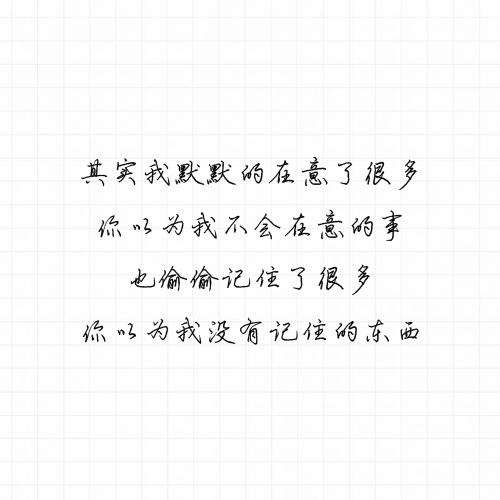 其实我默默的在意了很多
你以为我不会在意的事
也偷偷记住了很多
你以为我没有记住的东西